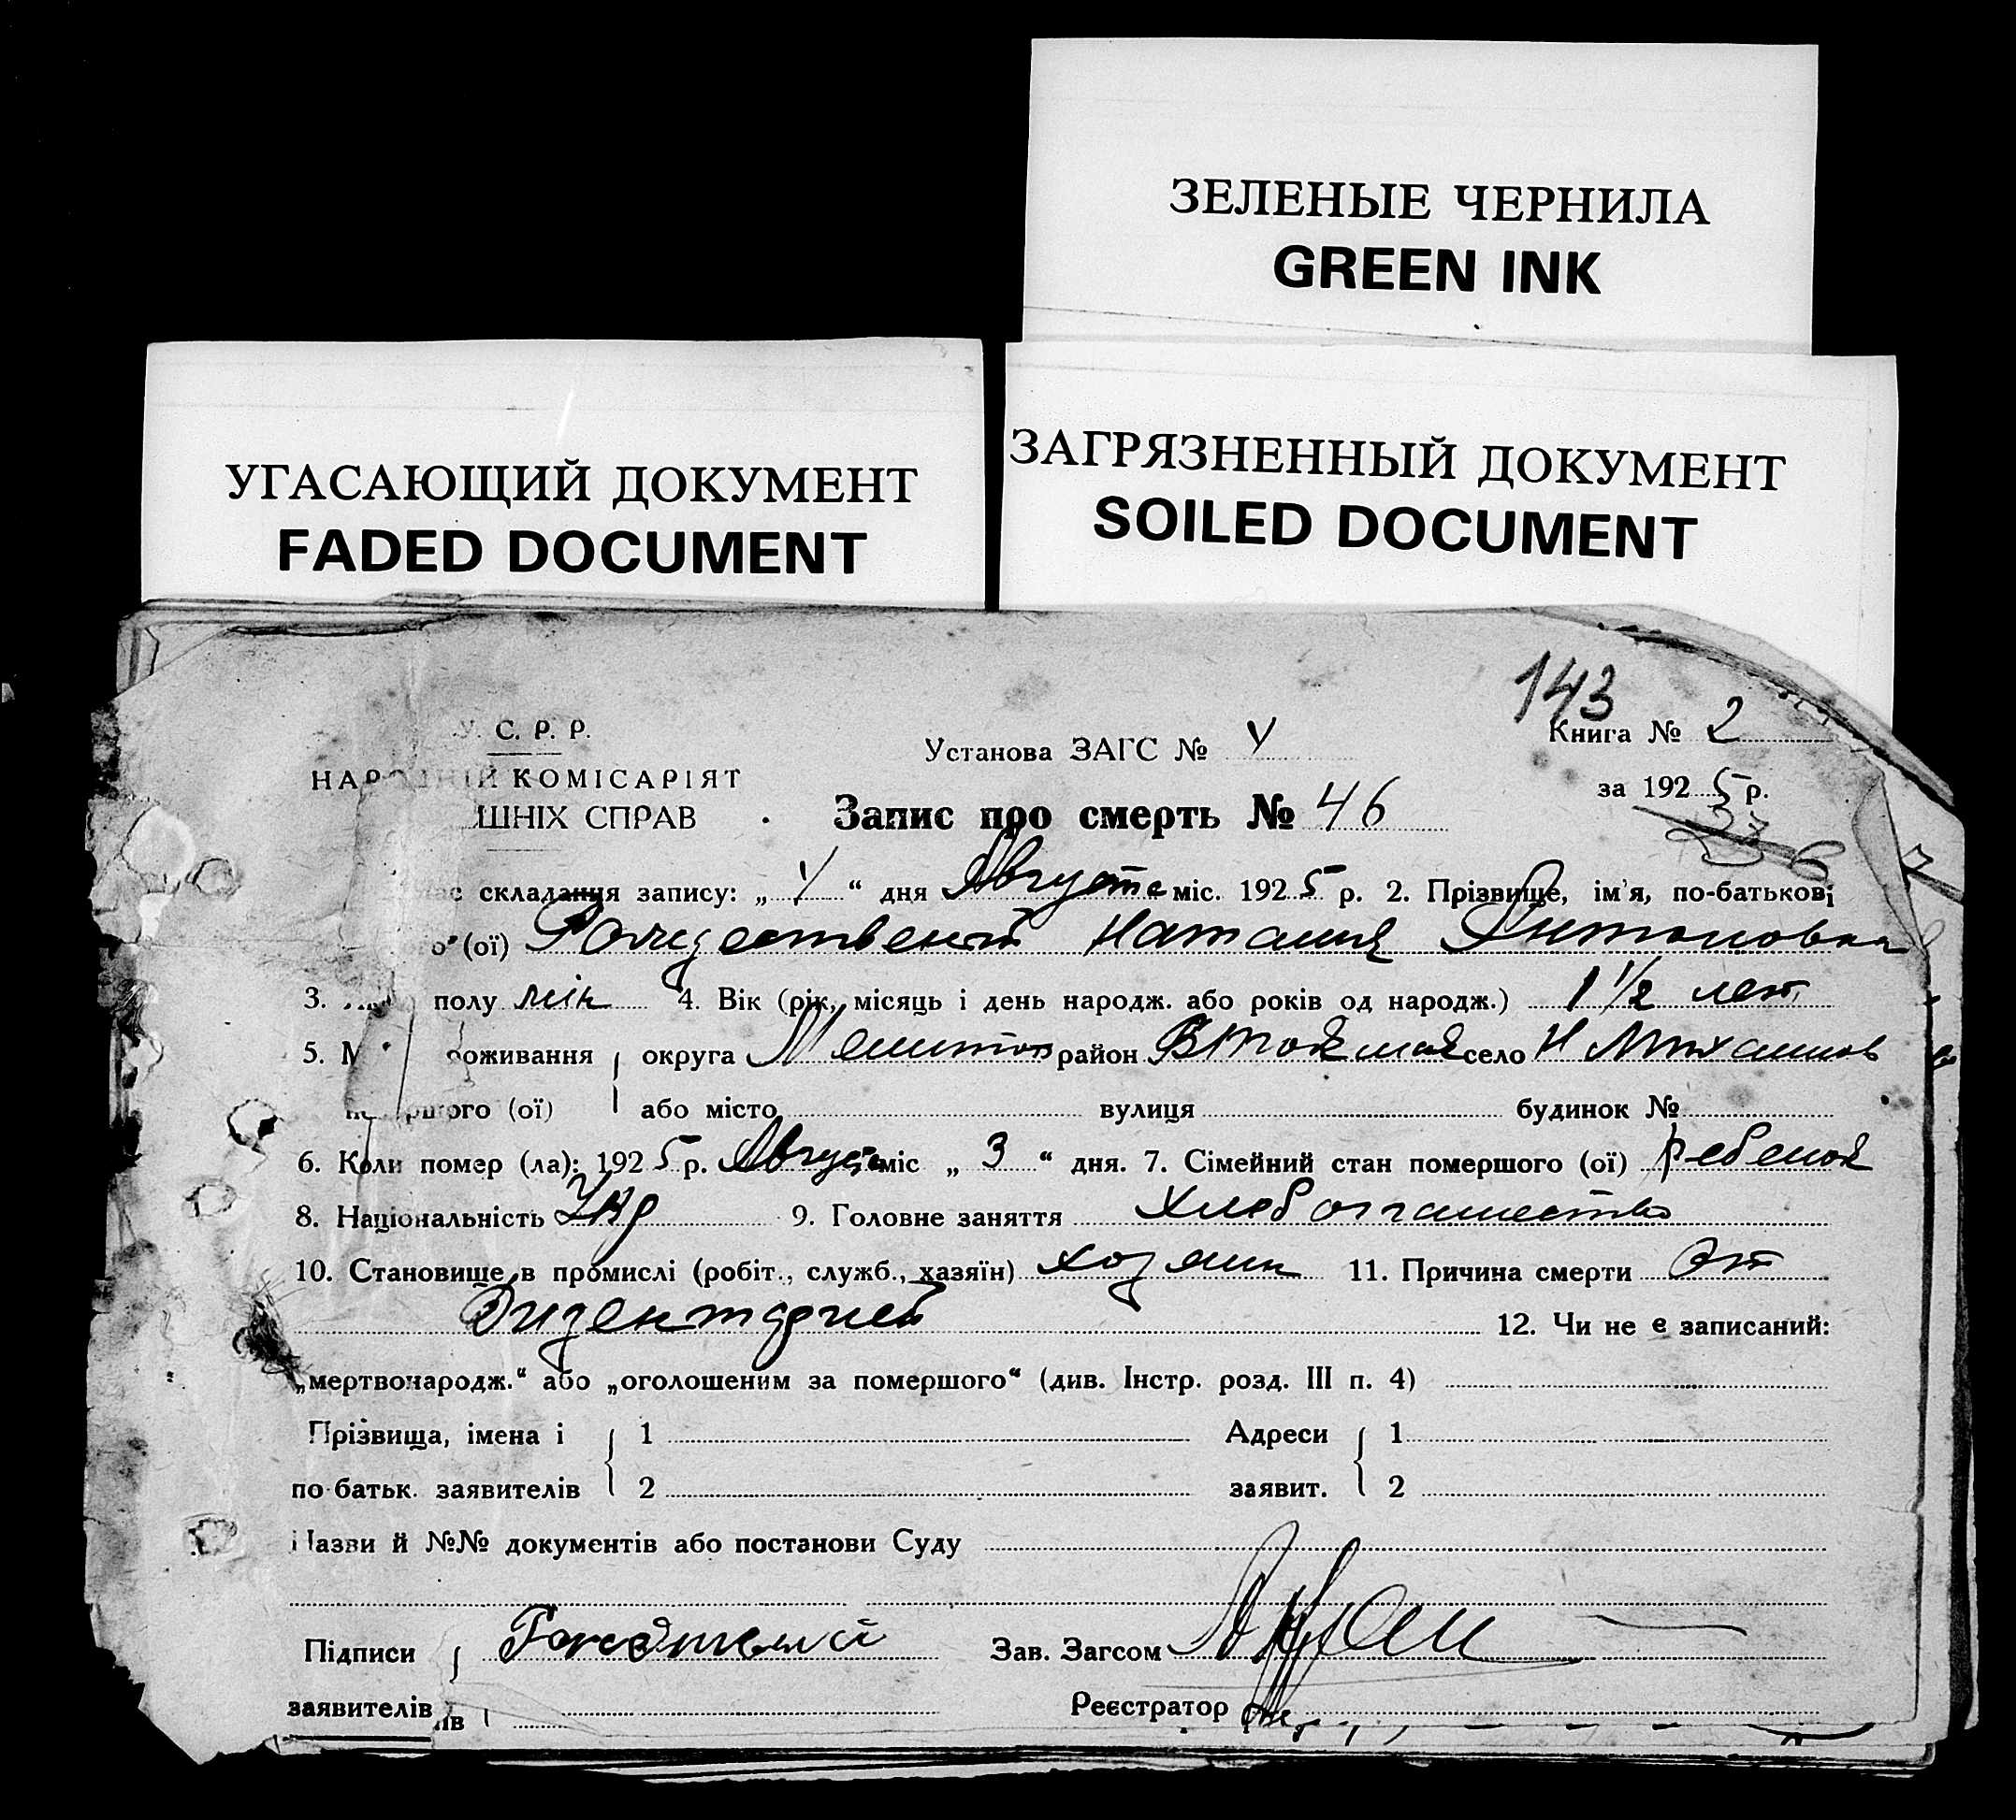 ЗЕЛЕНЫЕ ЧЕРНИЛА
GREEN INK
УГАСАЮЩИЙ ДОКУМЕНТ
FADED DOCUMENT
ЗАГРЯЗНЕННЫЙ ДОКУМЕНТ
SOILED DOCUMENT
143
У. С. Р. Р.
НАРОДНІЙ КОМІСАРІЯТ
ШНІХ СПРАВ
Установа ЗАГС №
Книга № 2
за 1925 р.
Запис про смерть № 46
час складання запису: „ “ дня Августа міс. 1925 р. 2. Прізвище, ім'я, по-батькові
ого (ої) Рождественск Наталия Антоновна
3. полу жін 4. Вік (рік, місяць і день народж. або років од народж.) 1 1/2 лет
5. М роживання { округа Мелитоп район село Н Михайлов
першого (ої) або місто вулиця будинок №
6. Коли помер (ла): 1925 р. Август міс „ 3 “ дня. 7. Сімейний стан помершого (ої) ребенок
8. Національність Укр 9. Головне заняття
10. Становище в промислі (робіт., служб., хазяїн) хозяин 11. Причина смерти От
Дизентерией 12. Чи не є записаний:
„мертвонародж.“ або „оголошеним за помершого“ (див. Інстр. розд. III п. 4)
Прізвища, імена і { 1 Адреси { 1
по-батьк. заявителів 2 заявит. 2
Назви й №№ документів або постанови Суду
Підписи { Зав. Загсом
заявителів Реєстратор
ів